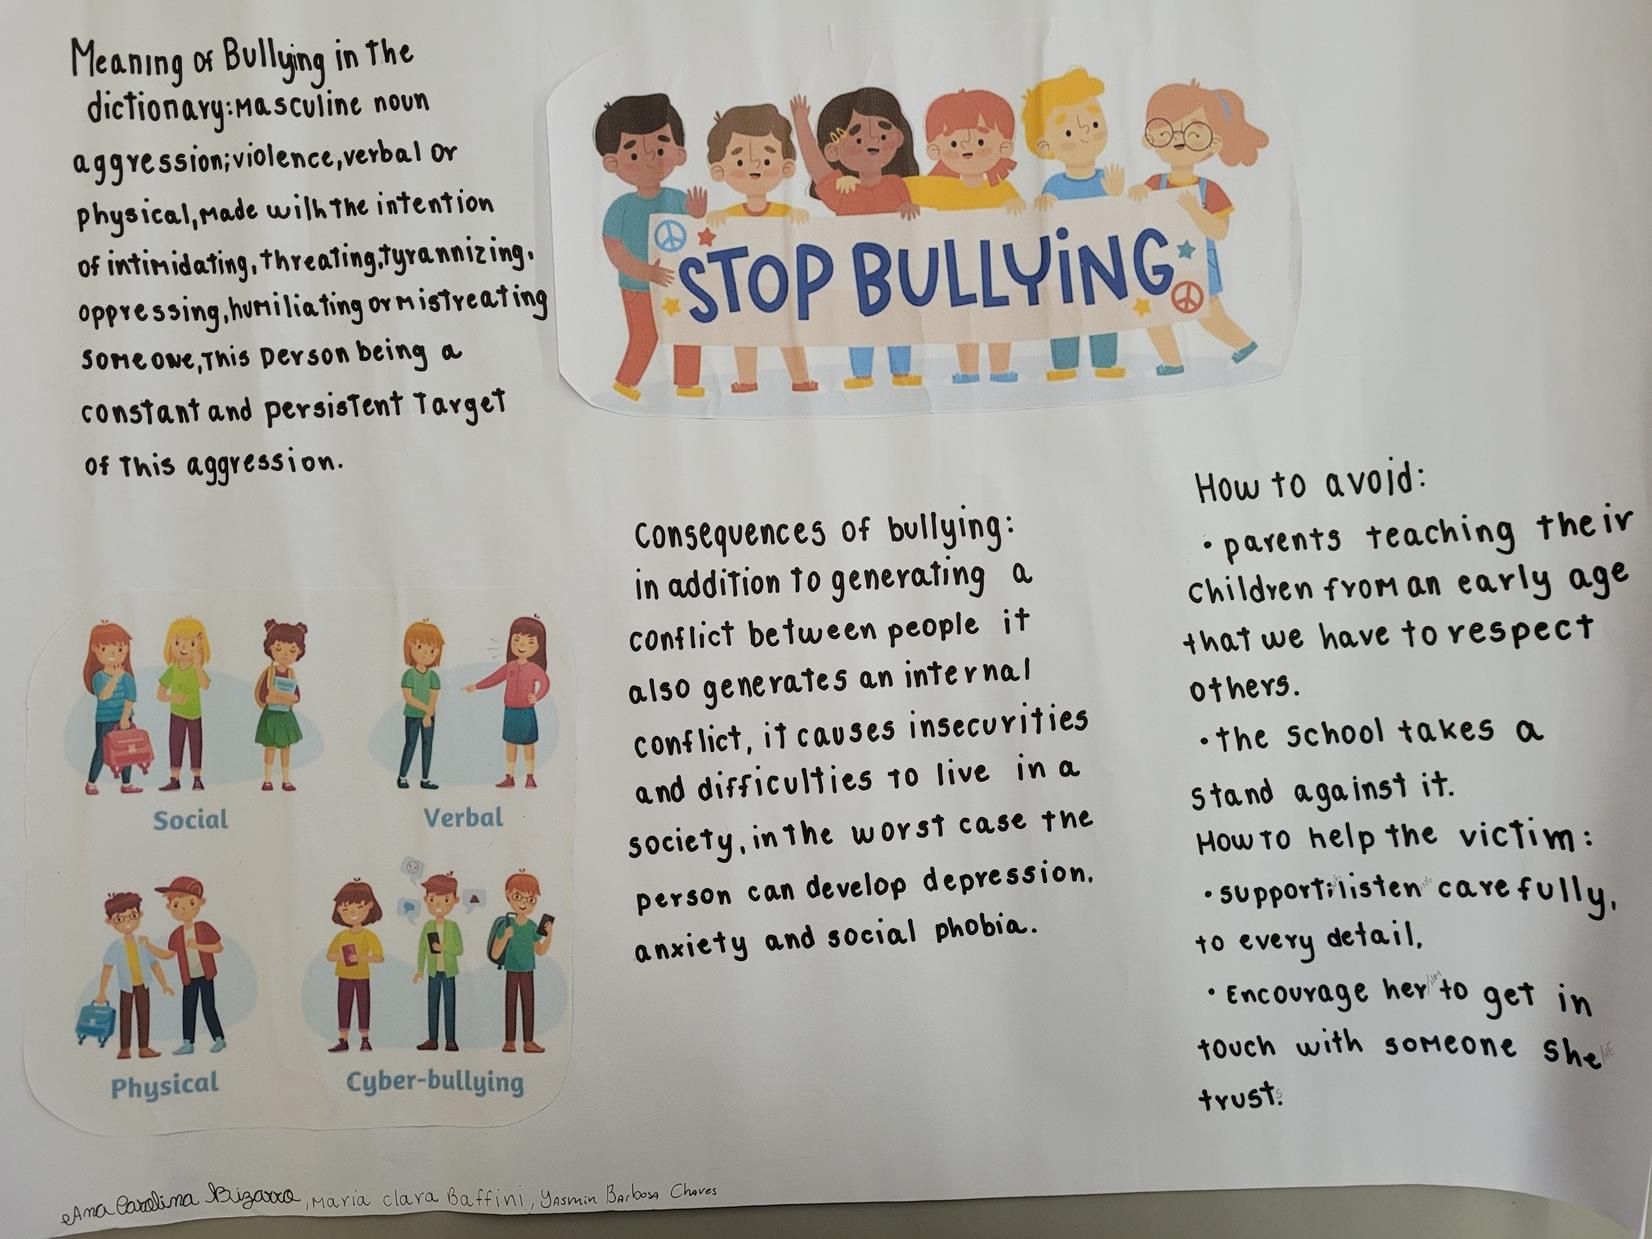 Meaning of Bullying in the
dictionary:Masculine noun
aggression;violence,verbal or
physical,made wilh the intention
of intimidating,threating,tyrannizing,
oppressing,humiliating or mistreating
someowe,this person being a
constant and persistent target
of this aggression.
STOP BULLYiNG
Social
Verbal
Physical
Cyber-bullying
Consequences of bullying:
in addition to generating a
conflict between people it
also generates an internal
conflict, it causes insecurities
and difficulties to live in a
society, in the worst case the
person can develop depression,
anxiety and social phobia.
How to avoid:
• parents teaching their
children from an early age
that we have to respect
others.
• the school takes a
stand against it.
How to help the victim:
• support: listen carefully,
to every detail,
• Encourage her/him to get in
touch with someone she/he
trusts.
Ana Carolina Bizarro, Maria Clara Baffini, Yasmin Barbosa Chaves